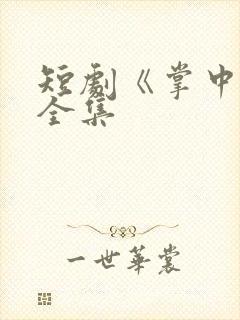 短劇《掌中
全集
一世華裳